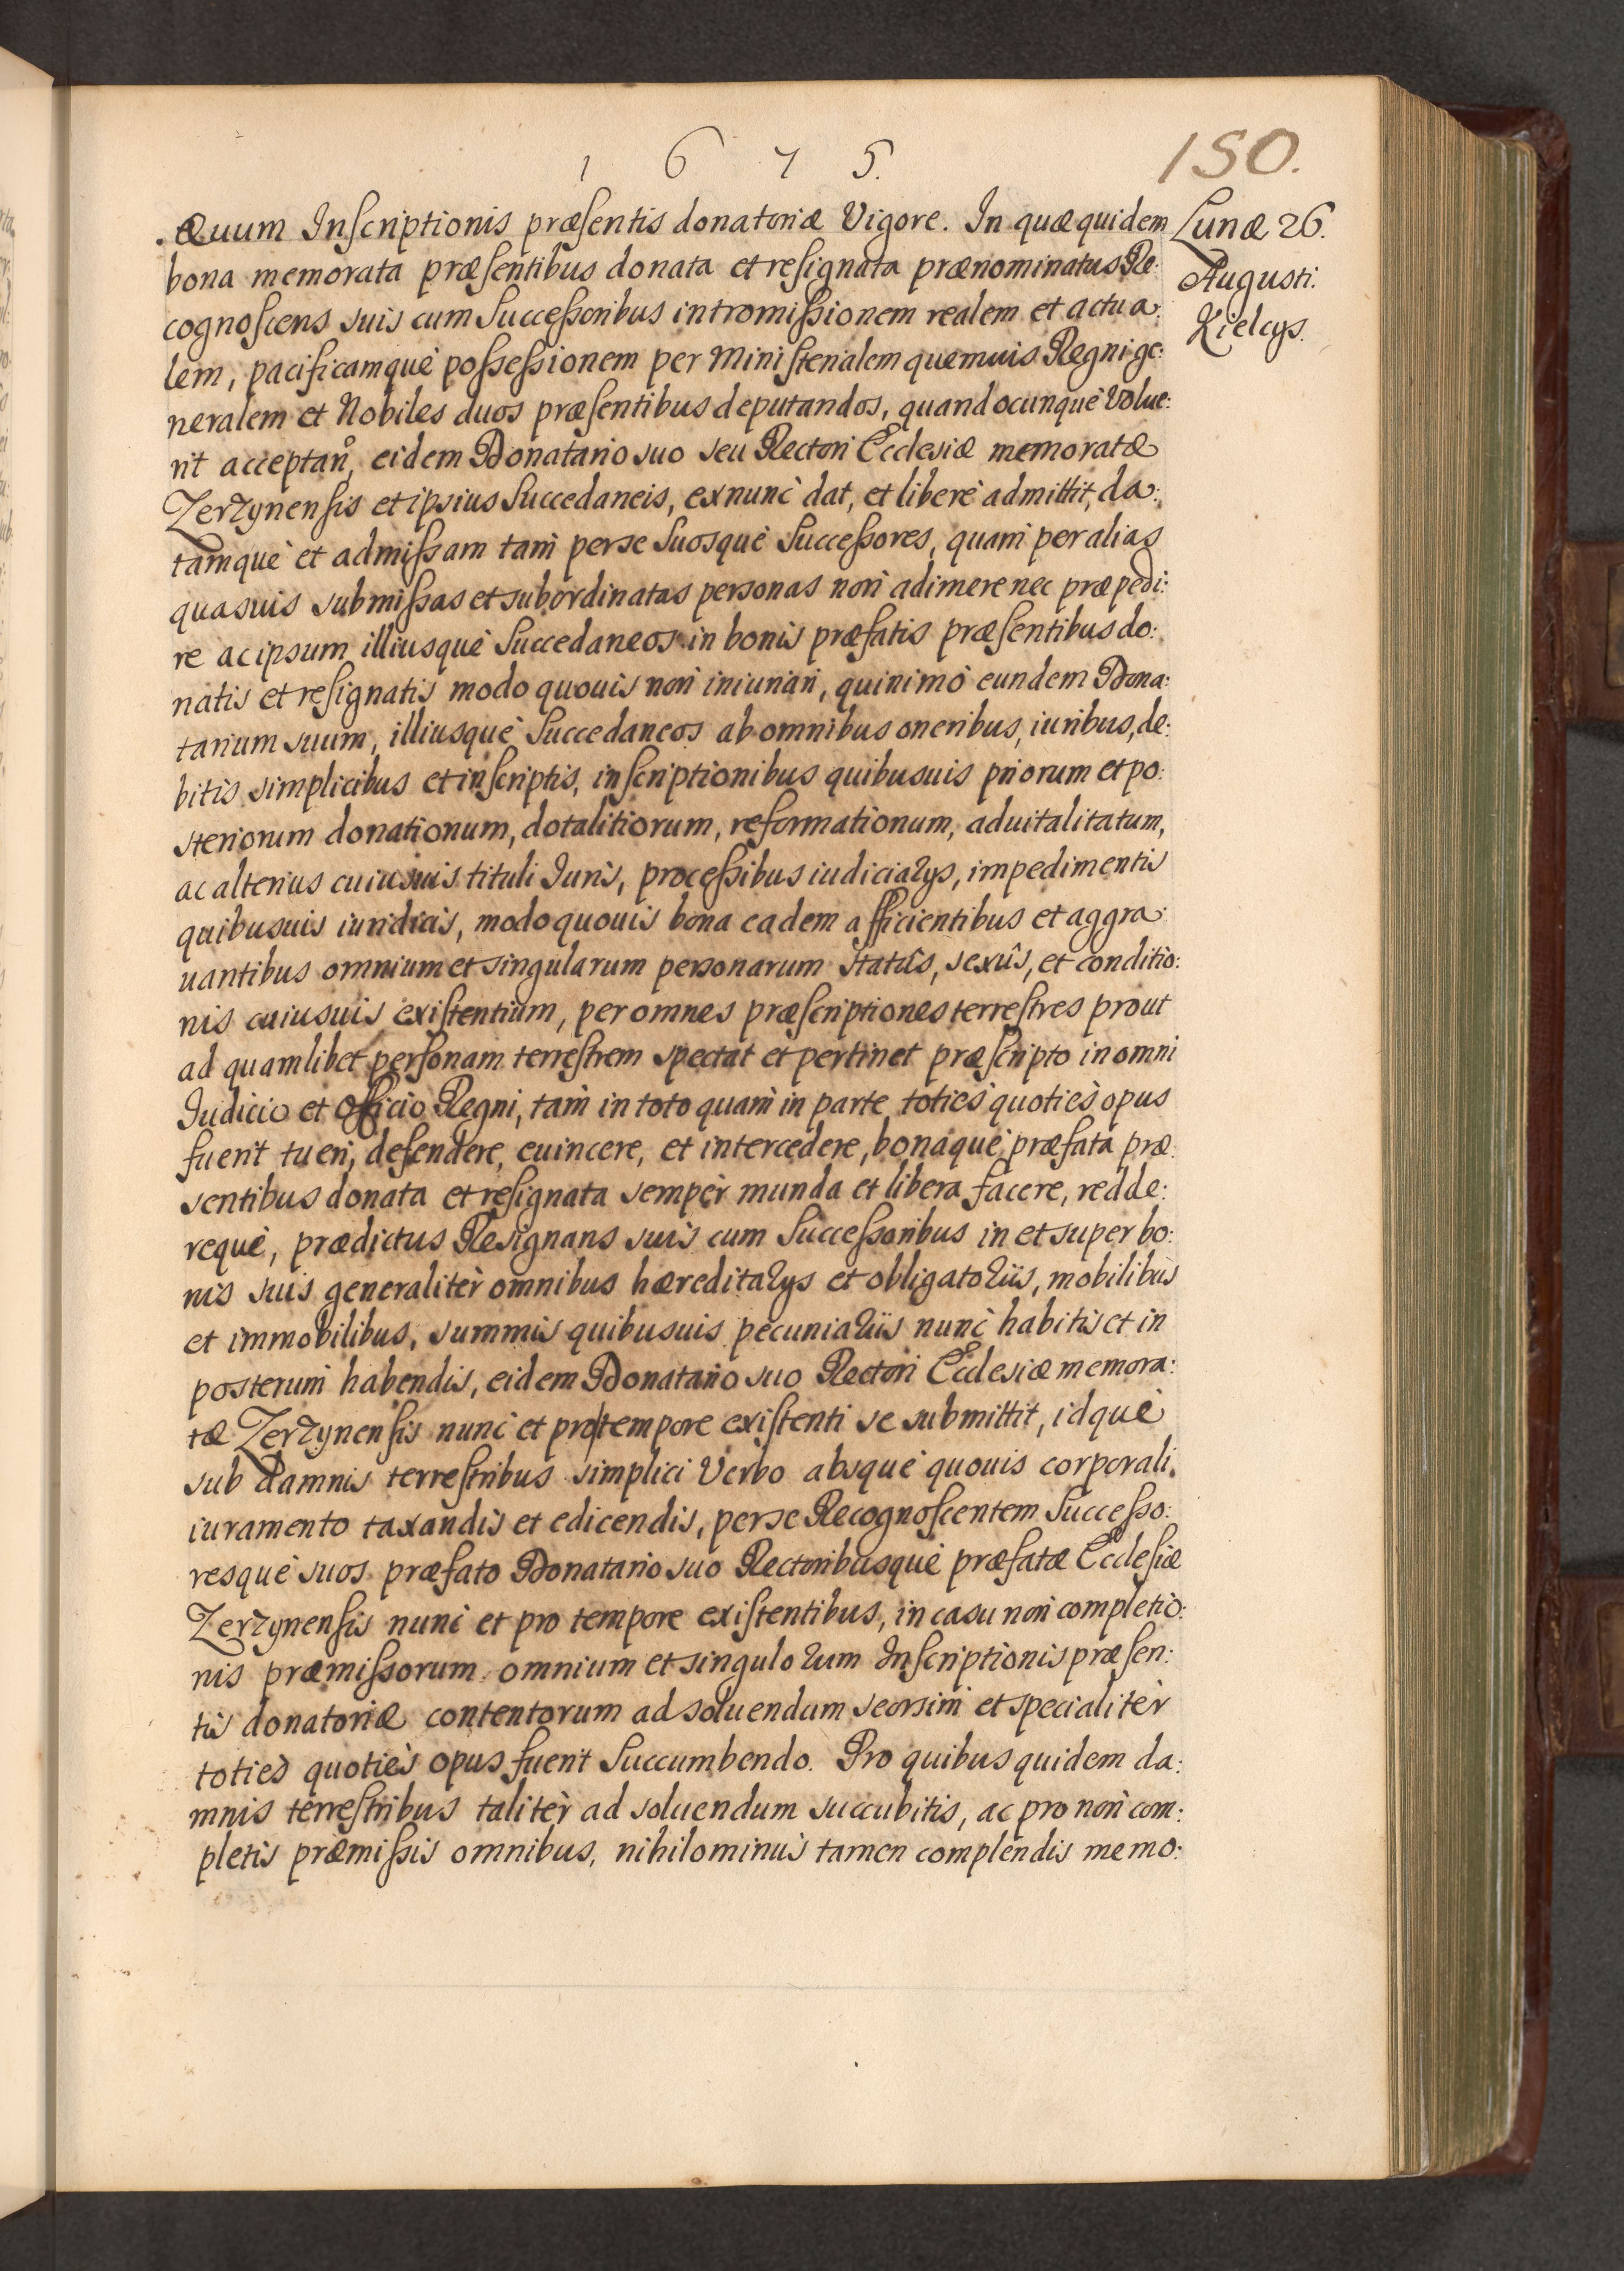 1 6 7 5.
150.
Lunæ 26.
Augusti.
Kielcys.
æuum Inscriptionis præsentis donatoriæ Vigore. In quæ quidem
bona memorata præsentibus donata et resignata prænominatus Re:
cognoscens suis cum Successoribus intromissionem realem et actua:
lem, pacificamque possessionem per Ministerialem quemuis Regni ge:
neralem et Nobiles duos præsentibus deputandos, quandocunque Volue:
rit acceptan̊, eidem Donatario suo seu Rectori Ecclesiæ memoratæ
Zerzynensis et ipsius Succedaneis, exnunc dat, et liberè admittit, da:
tamquè et admissam tam per se Suosquè Successores, quam per alias
quasuis submissas et subordinatas personas non adimere nec præpedi:
re ac ipsum illiusquè Succedaneos in bonis præfatis præsentibus do:
natis et resignatis modo quouis non iniuriari, quinimò eundem Dona:
tarium suum, illiusquè Succedaneos ab omnibus oneribus, iuribus, de:
bitis simplicibus et inscriptis, inscriptionibus quibusuis priorum et po:
steriorum donationum, dotalitiorum, reformationum, aduitalitatum,
ac alterius cuiusuis tituli Iuris, processibus iudiciarys, impedimentis
quibusuis iuridicis, modo quouis bona eadem afficientibus et aggra:
uantibus omnium et singularum personarum statûs, sexûs, et conditio:
nis cuiusuis existentium, per omnes præscriptiones terrestres prout
ad quamlibet personam terrestrem spectat et pertinet præscripto in omni
Iudicio et Officio Regni, tam in toto quam in parte toties quoties opus
fuerit tueri, defendere, euincere, et intercedere, bonaquè præfata præ:
sentibus donata et resignata semper munda et libera facere, redde:
requè, prædictus Resignans suis cum Successoribus in et super bo:
nis suis generalitèr omnibus hæreditarys et obligatoriis, mobilibus
et immobilibus, summis quibusuis pecuniariis nunc habitis et in
posterum habendis, eidem Donatario suo Rectori Ecclesiæ memora:
tæ Zerzynensis nunc et pro tempore existenti se submittit, idquè
sub damnis terrestribus simplici Verbo absque quouis corporali
iuramento taxandis et edicendis, per se Recognoscentem Successo:
resquè suos præfato Donatario suo Rectoribusquè præfatæ Ecclesiæ
Zerzynensis nunc et pro tempore existentibus, in casu non completio:
nis præmissorum omnium et singulorum Inscriptionis præsen:
tis donatoriæ contentorum ad soluendum seorsim et specialitèr
toties quoties opus fuerit Succumbendo. Pro quibus quidem da:
mnis terrestribus talitèr ad soluendum succubitis, ac pro non com:
pletis præmissis omnibus, nihilominus tamen complendis memo: